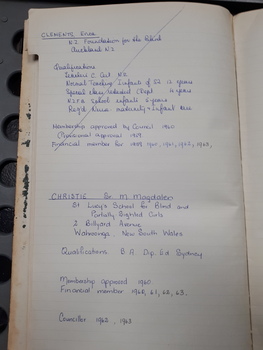 CLEMENTS Enia
N.Z. Foundation for the Blind
Auckland N.Z.
Qualifications
Teachers C. Cert. N.Z.
Normal Teaching & infants of S2 12 years
Special class Individual Dept 4 years
N.Z.F.B. School infants 6 years
Reg'd Nurse maternity + infant care
Membership approved by Council 1960
(Provisional approval 1959)
Financial member for 1959, 1960, 1961, 1962, 1963,
CHRISTIE Sr. M. Magdalen
St Lucy's School for Blind and
Partially Sighted Girls
2 Billyard Avenue
Wahroonga, New South Wales
Qualifications B.A. Dip. Ed Sydney
Membership approved 1960
Financial member 1960, 61, 62, 63.
Councillor 1962, 1963